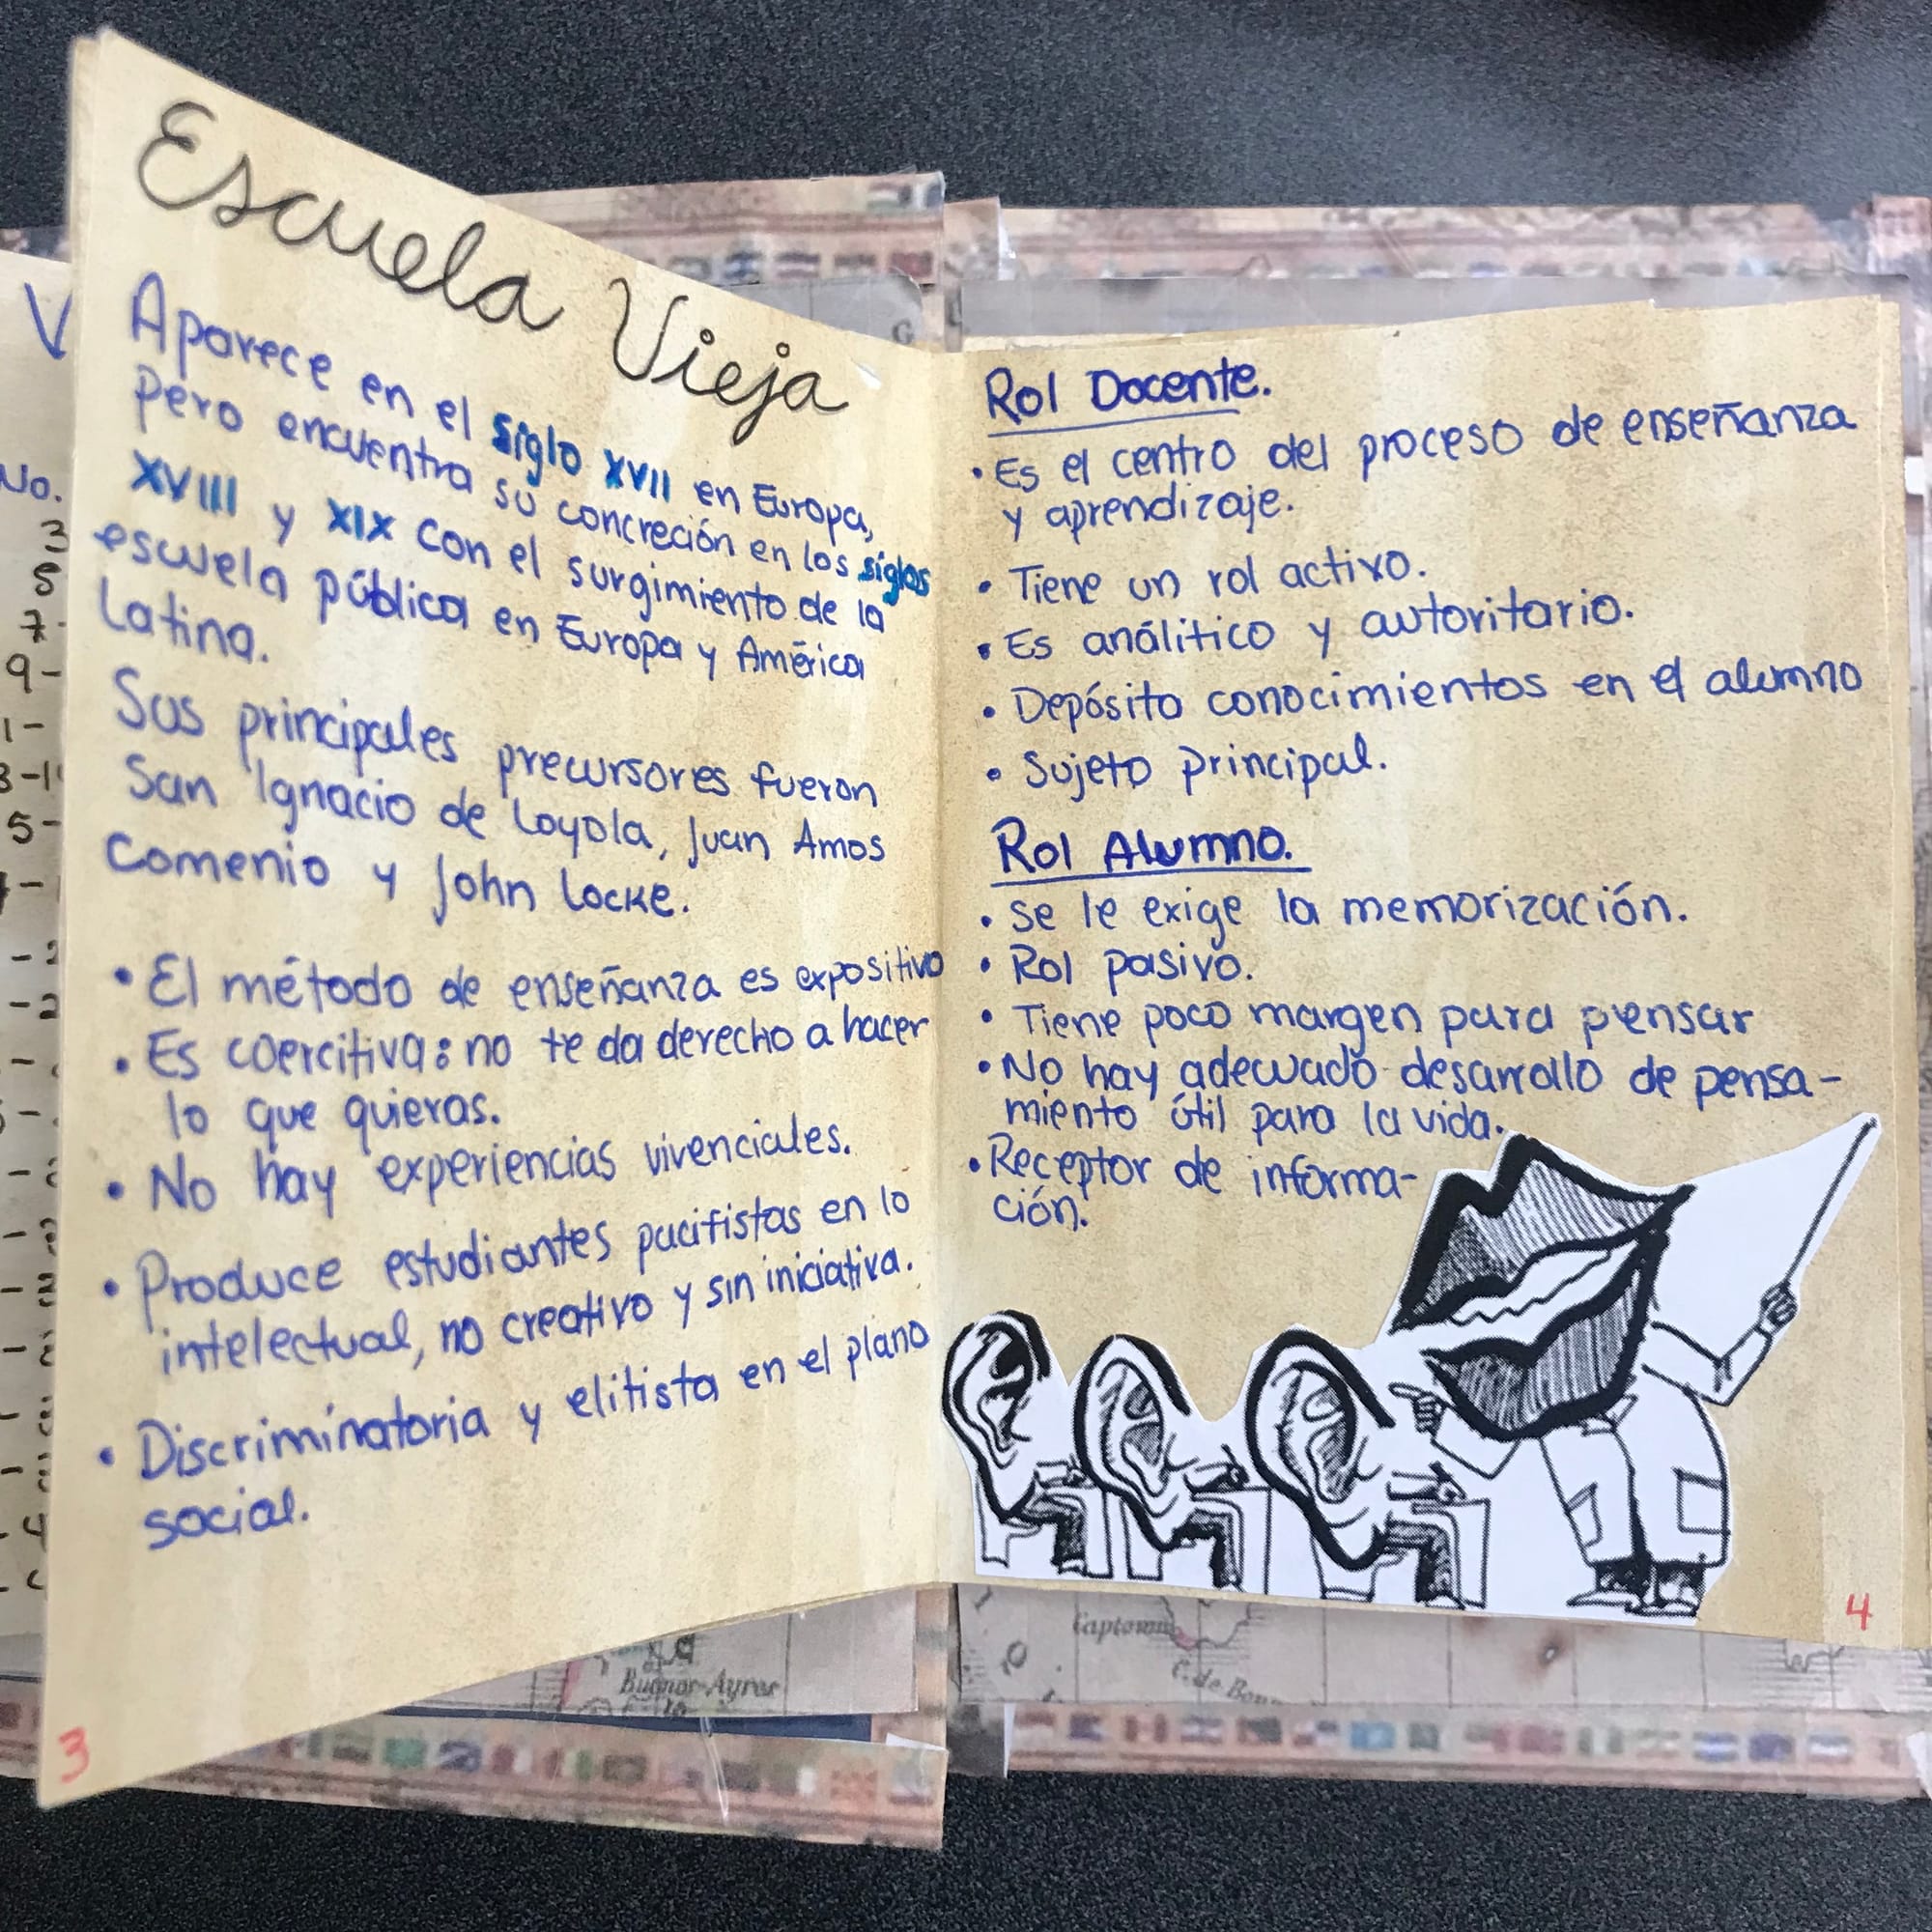 Escuela Vieja
Aparece en el siglo XVII en Europa,
pero encuentra su concreción en los siglos
XVIII y XIX con el surgimiento de la
escuela pública en Europa y América
Latina.
Sus principales precursores fueron
San Ignacio de Loyola, Juan Amos
Comenio y John Locke.
• El método de enseñanza es expositivo
• Es coercitiva: no te da derecho a hacer
lo que quieras.
• No hay experiencias vivenciales.
• Produce estudiantes pacifistas en lo
intelectual, no creativo y sin iniciativa.
• Discriminatoria y elitista en el plano
social.
3
Rol Docente.
• Es el centro del proceso de enseñanza
y aprendizaje.
• Tiene un rol activo.
• Es análitico y autoritario.
• Depósito conocimientos en el alumno
• Sujeto principal.
Rol Alumno.
• Se le exige la memorización.
• Rol pasivo.
• Tiene poco margen para pensar
• No hay adecuado desarrollo de pensa-
miento útil para la vida.
• Receptor de informa-
ción.
4
V
No.
3
5
7-
9-
1-
Buenos-Ayres
C. de Bon